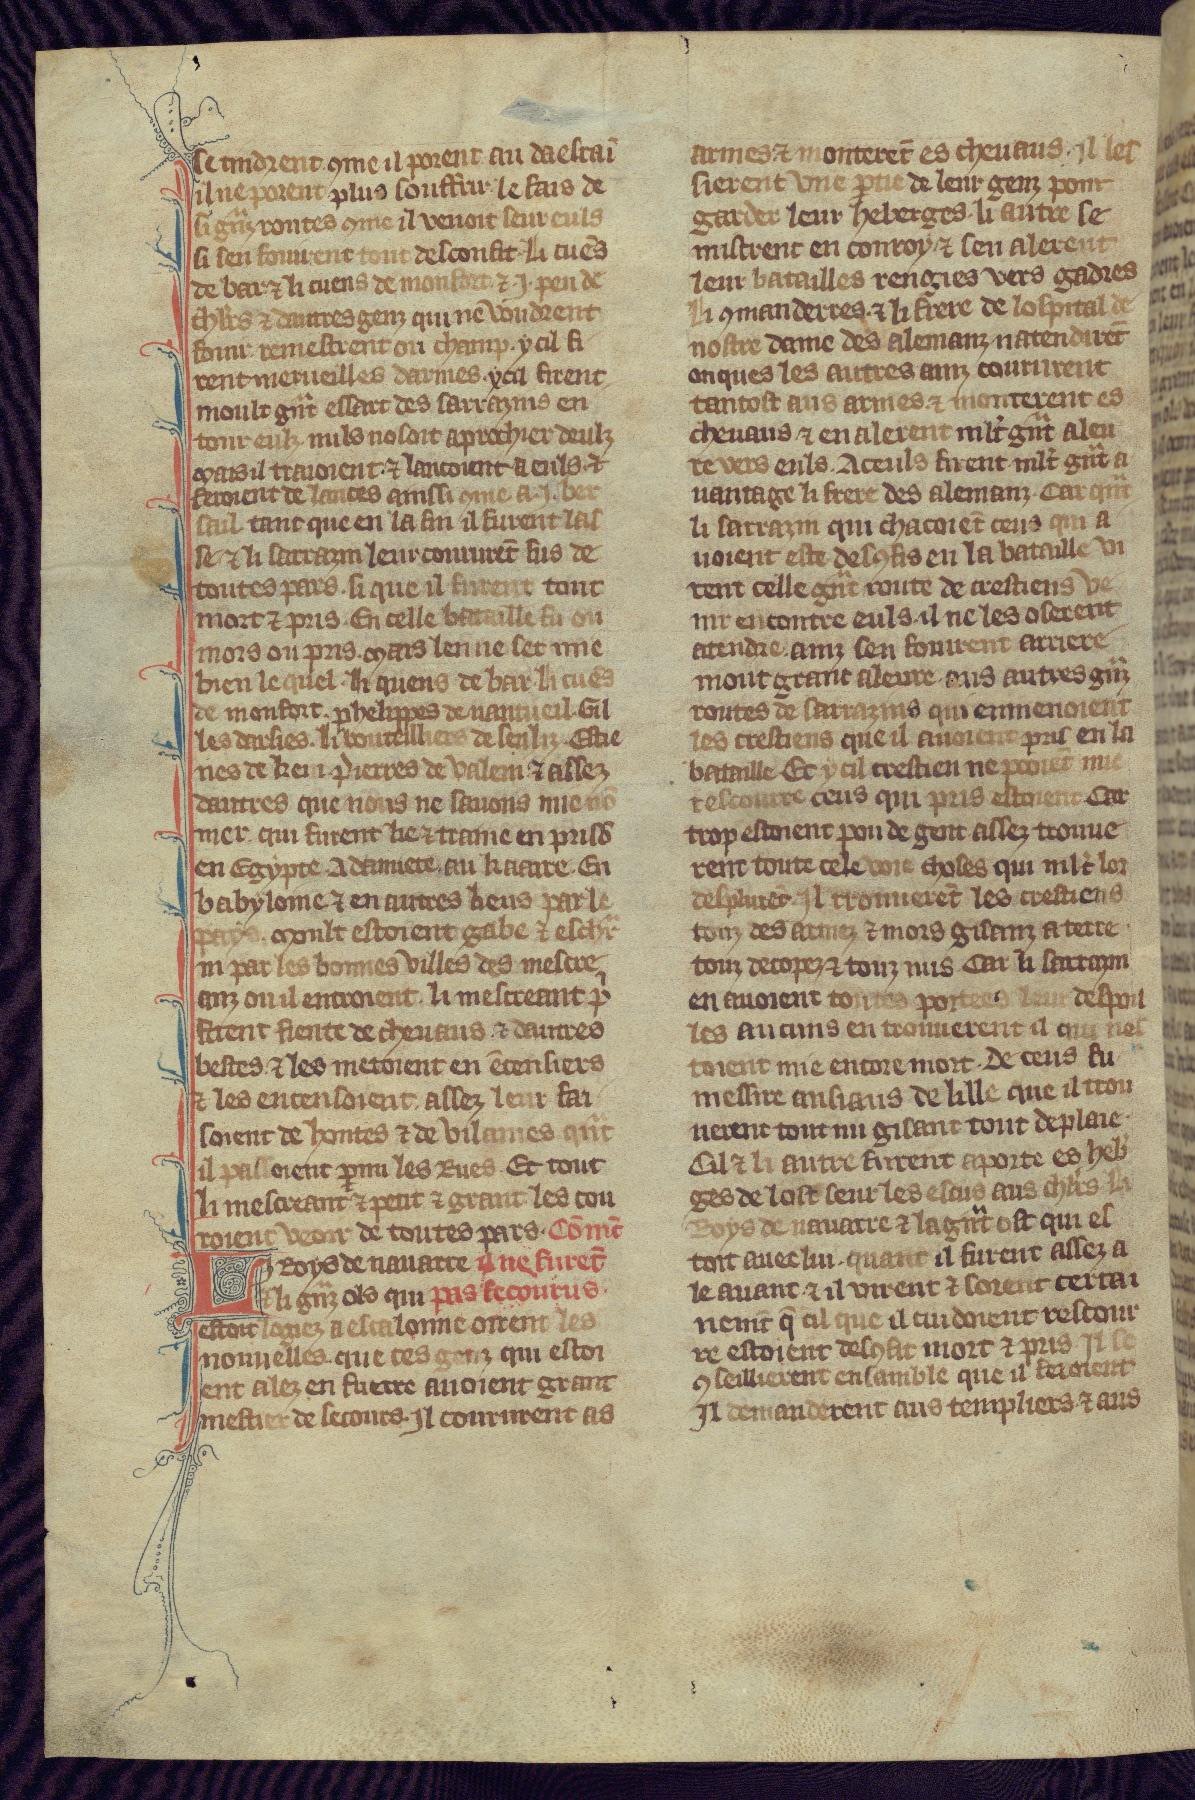 se tindrent ꝯme il porent au daesrai͂
il ne porent plus souffrir le fais de
si gn̄z routes ꝯme il venoit seur euls
si sen fouirent tout desconfit. Li cuēs
de bar ⁊ li cuens de monfort. ⁊ .j. peu de
ch'lrs ⁊ dautres genz qui ne voudrent
fouir. remestrent ou champ. ycil fi
rent merueilles darmes. ycil firent
moult gn̄t essart des sarrazins en
tour eulz. nuls nosoit aprochier deulz
Mais il traioient. ⁊ lancoient a euls. ⁊
feroient de lances aussi ꝯme a .j. ber
sail. tant que en la fin il furent las
se. ⁊ li sarrazin leur coururēt sus de
toutes pars. si que il furent tout
mort ⁊ pris. En celle bataille fu ou
mors ou pris. Mais len ne set mie
bien le quel. li quens de bar. li cuēs
de monfort. phelippes de nantueil. Gil
les darsies. li bouteilliers de senliz. Estie
nes de
Pierres de valein ⁊ assez
dautres que nous ne sauons mie nō
mer. qui furent lie ⁊ traine en prisō
en Egypte. A damiete. au kaarre. En
babyloine ⁊ en autres lieus par le
pays. Moult estoient gabe ⁊ escħr
ni par les bonnes villes des mescre
anz ou il entroient. li mescreant p̄
stient fiente de cheuaus. ⁊ dautres
bestes. ⁊ les metoient en ēcensiers
⁊ les encensoient. assez leur fai
soient de hontes ⁊ de vilanies. qn̄t
il passoient p̄mi les Rues. Et tout
li mescreant ⁊ petit ⁊ grant les cou
roient veoir de toutes pars. Cōmēt
Li Roys de nauarre il ne furēt
⁊ li gn̄z ols qui pas secourus.
estoit logiez a escalonne oirent les
nouuelles. que ces genz qui estoi
ent alez en fuerre auoient grant
mestier de secours. Il coururent as
armes. ⁊ monterēt es cheuaus. Il les
sierent vne p̄tie de leur genz pour
garder leur heberges. li autre se
mistrent en conroy. ⁊ sen alerent
leur batailles rengies vers gadres
Li ꝯmanderres. ⁊ li frere de lospital de
nostre dame des alemanz. natendirēt
onques les autres ainz coururent
tantost aus armes. ⁊ monterent es
cheuaus. ⁊ en alerent ml̄t gn̄t aleu
re vers euls. A ceuls firent ml̄t gn̄t a
uantage li frere des alemanz. Car qn̄t
li sarrazin qui chacoiēt ceus qui a
uoient este desꝯfis en la bataille vi
rent celle gn̄t route de crestiens ve
nir encontre euls. il ne les oserent
atendre. ainz sen fouirent arriere
mout grant aleure. aus autres gn̄z
routes de sarrazins qui enmenoient
les crestiens que il auoient pris en la
bataille. Et ycil crestien ne pooiēt mie
rescourre ceus qui pris estoient. Car
trop estoient pou de gent. assez trouue
rent toute cele voie choses qui ml̄t lor
desplurēt. Il trouuerēt les crestiens
touz desarmez ⁊ mors gisanz a terre.
touz decopez. ⁊ touz nus. Car li sarrazin
en auoient toutes portees leur despoil
les. aucuns en trouuerent il qui nes
toient mie encore mort. De ceus fu
messire ansiaus de lille. que il trou
uerent tout nu gisant tout de plaie.
Cil ⁊ li autre furent aporte es heb'
ges de lost seur les escus aus ch'lrs. Li
Roys de nauarre ⁊ la gn̄t ost qui es
toit auec lui. quant il furent assez a
le auant. ⁊ il virent ⁊ sorent certai
nemt̄ q̄ cil que il cuidoient rescour
re estoient desꝯfit mort ⁊ pris. Il se
ꝯseillierent ensamble que il feroient
Il demanderent aus templiers. ⁊ aus